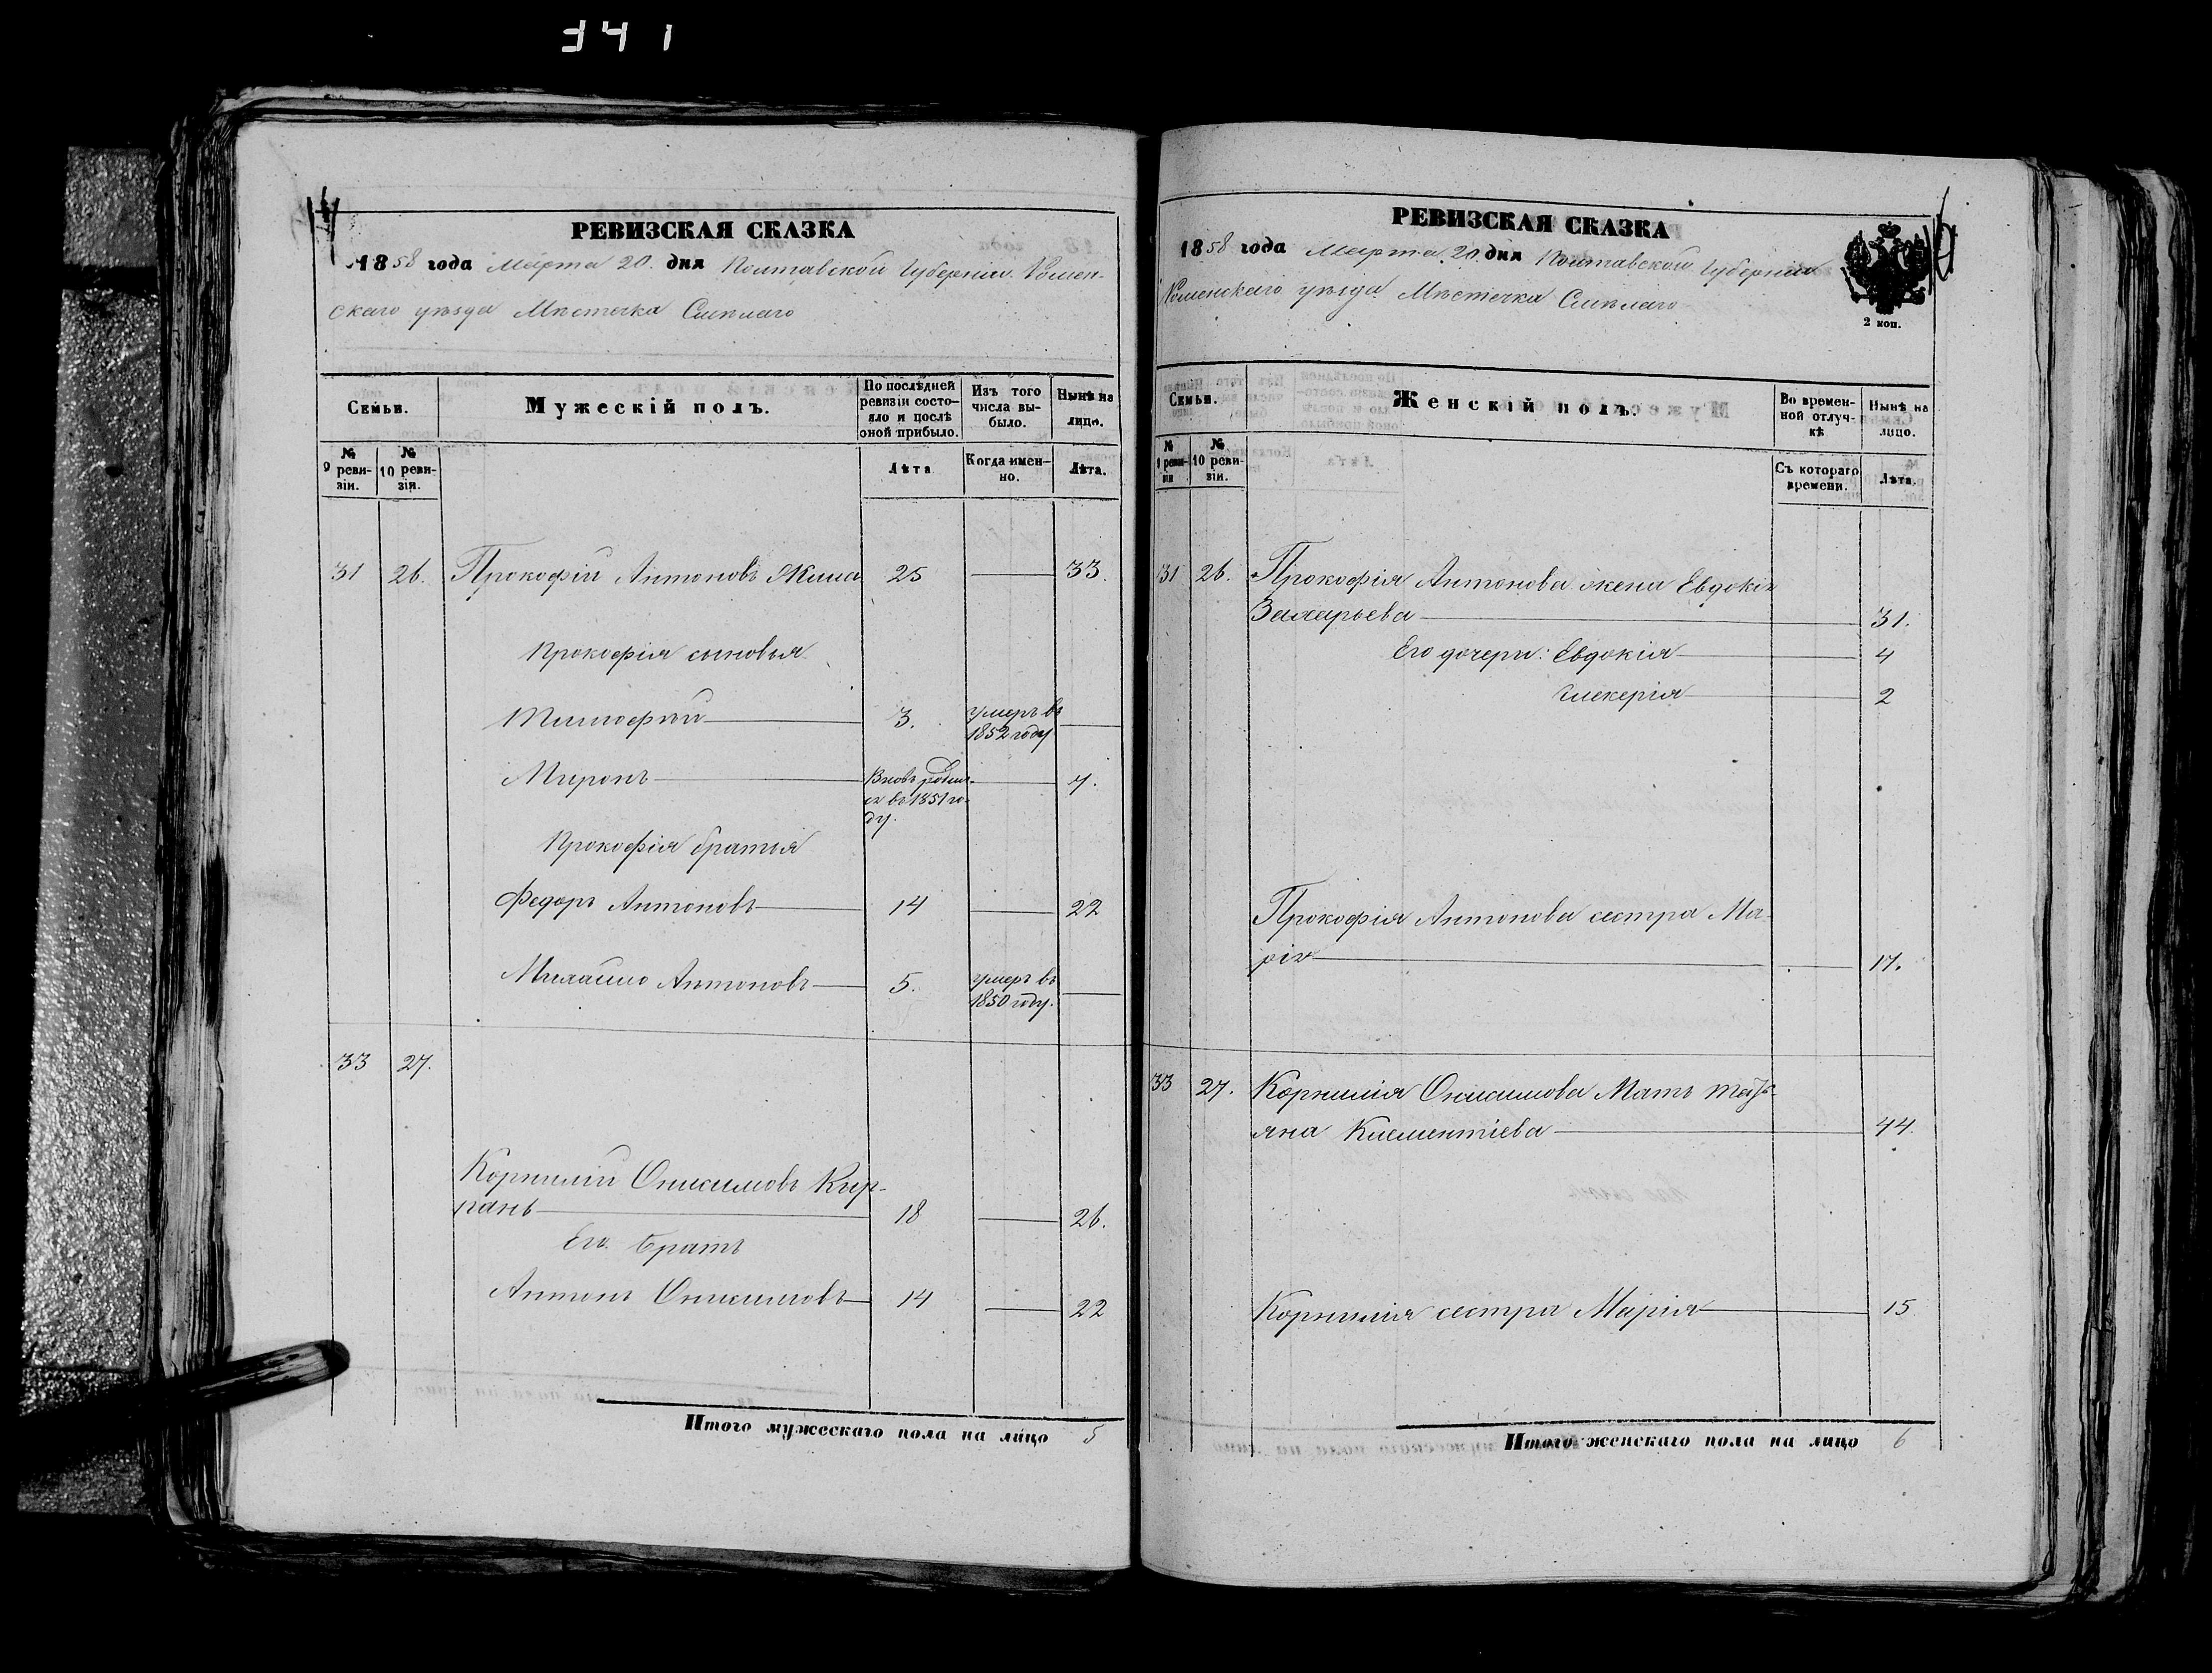 341
РЕВИЗСКАЯ СКАЗКА
1858 года Марта 20. дня Полтавской Губерніи Ромен-
скаго уѣзда Мѣстечка Смѣлаго
Семьи.
Мужескій полъ.
По послѣдней ревизіи состо-яло и послѣ оной прибыло.
Изъ того числа вы-было.
Нынѣ на лицо.
№ 9 реви-зіи.
№ 10 реви-зіи.
Лѣта
Когда имен-но.
Лѣта.
31 26. Прокофій Антоновъ 25 33.
Прокофія сыновья
Тимофей 3. умеръ въ 1852 году
Миронъ Вновь родил-ся въ 1851 го-ду. 7.
Прокофія братья
Федоръ Антоновъ 14 22
Михайло Антоновъ 5. умеръ въ 1850 году.
33 27.
Корнилій Онисимовъ Кир-
пань 18 26.
Его братъ
Антонъ Онисимовъ 14 22
Итого мужескаго пола на лицо 5
РЕВИЗСКАЯ СКАЗКА
1858 года Марта 20 дня Полтавской Губерніи
Роменскаго уѣзда Мѣстечка Смѣлаго
2 коп.
Семьи.
Женскій полъ.
Во времен-ной отлуч-кѣ
Нынѣ на лицо.
№ 9 реви-зіи
№ 10 реви-зіи.
Съ котораго времени.
Лѣта.
31 26. Прокофія Антонова жена Евдокія
Захарьева 31.
Его дочери: Евдокія 4
Гликерія 2
Прокофія Антонова сестра Ма-
рія 17.
33 27. Корнилія Онисимова Мать Тать-
яна Климентіева 44.
Корнилія сестра Марія 15
Итого женскаго пола на лицо 6